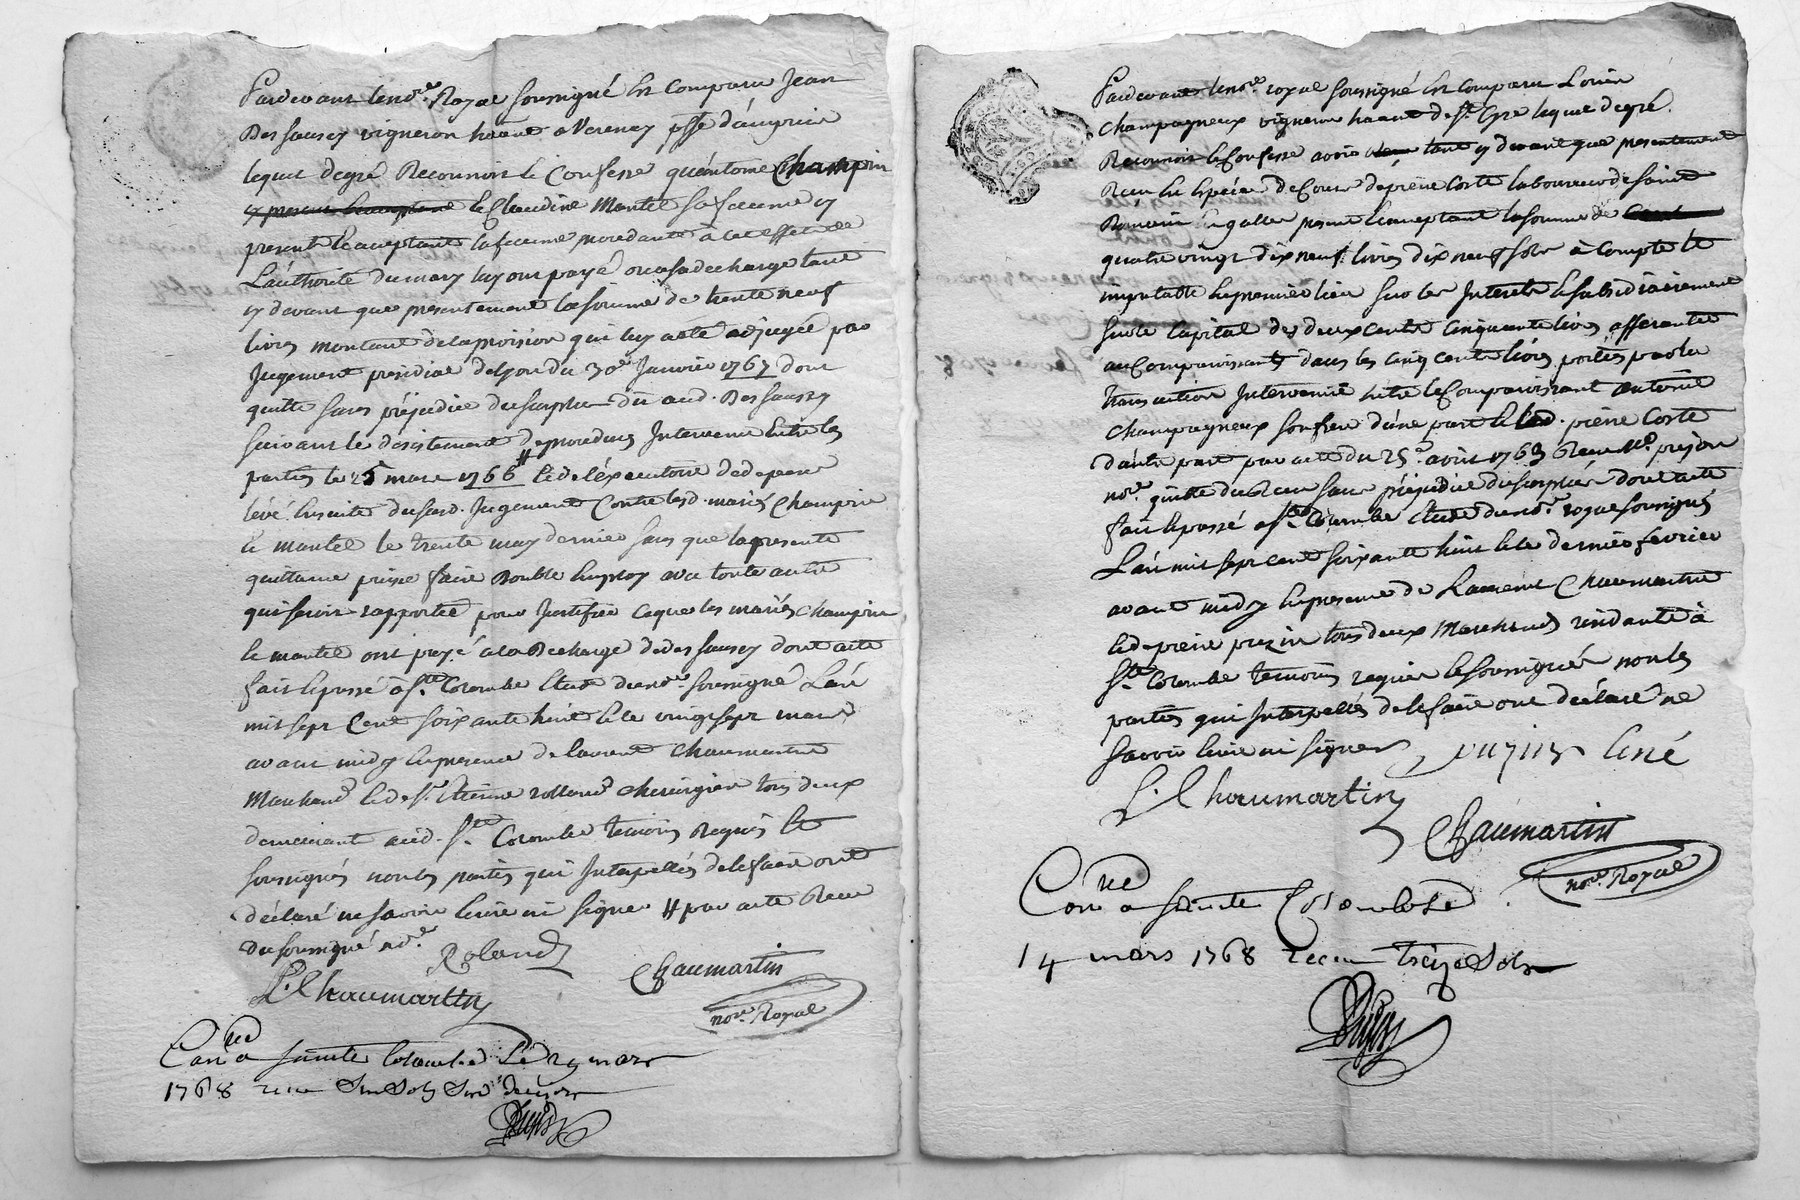 Pardevant le no.re Royal soussigné est comparu Jean
Dessausey vigneron hãant a Verenay psse d'ampuix
lequel de gré Reconnoit & Confesse qu'entoine Champin
& Claudine Mantel sa femme cy
presente & aceptante la femme procedante à cet effet de
L'authorité du mary luy ont payé ou a sa decharge tant
cy devant que presentement la somme de trente neuf
livres montant de la provision qui luy a eté adjugée par
Jugement presidial de Lyon du 30e Janvier 1767 dont
quitte sans préjudice du surplus dû aud. Dessausey
suivant le desistement de procedures Intervenu Entre les
parties le 25 mars 1766 # & de l'éxecutoire de depens
lévé ensuite dususd. Jugement Contre lesd. mariés Champin
& mantel le trente may dernier sans que la presente
quittance puisse faire Double Employ avec toute autre
qui seroit rapportée pour Justifier ceque les mariés champin
& mantel ont payé a la Decharge de Dessausey dont acte
fait & passé à Ste Colombe Etude du no.re soussigné L'an
mil sept Cent soixante huit & le vingt sept mars
avant midy En presence de laurent chaumartin
Marchand & de sr. Etienne rolland chirurgien tous deux
demeurant aud. Ste Colombe temoins Requis &
soussignés non les parties qui Interpellés de le faire ont
déclaré ne savoir Ecrire ni signer # par acte Recu
du soussigné no.re
Roland
L. Chaumartin
Chaumartin
no.re Royal
Con.lé a sainte Colombe Le 29 mars
1768 recu
Pardevant le no.re royal soussigné est comparu
champagneux vigneron hãant de St. Cyr lequel de gré
Reconnoit & Confesse avoir tant cy devant que presentement
Recu En Espéces de Cours de pierre Coste laboureur de Saint
Romain En galler present & aceptant la somme de
quatre vingt dix neuf livres dix neuf sols à compte &
imputable En premier lieu sur les Interets & subsidiairement
sur le Capital des deux cents Cinquante livres afferantes
au Comparoissant dans les cinq cents livres portées par la
transaction Intervenue entre le Comparoissant antoine
champagneux son frere d'une part & led. pierre Coste
d'autre part par acte du 25e avril 1763 Recu Me. prejon
no.re quitte du Recu sans préjudice du surplus dont acte
fait & passé a Ste Colombe Etude du no.re royal soussigné
L'an mil sept cent soixante huit & le dernier fevrier
avant midy En presence de Laurent Chaumartin
& de pierre tous deux Marchands residants à
Ste Colombe temoins requis & soussignés non les
parties qui Interpellés de le faire ont déclaré ne
savoir Ecrire ni signer
L. Chaumartin
Chaumartin
no.re Royal
Con.lé a sainte Colombe Le
14 mars 1768 recu treize Sols